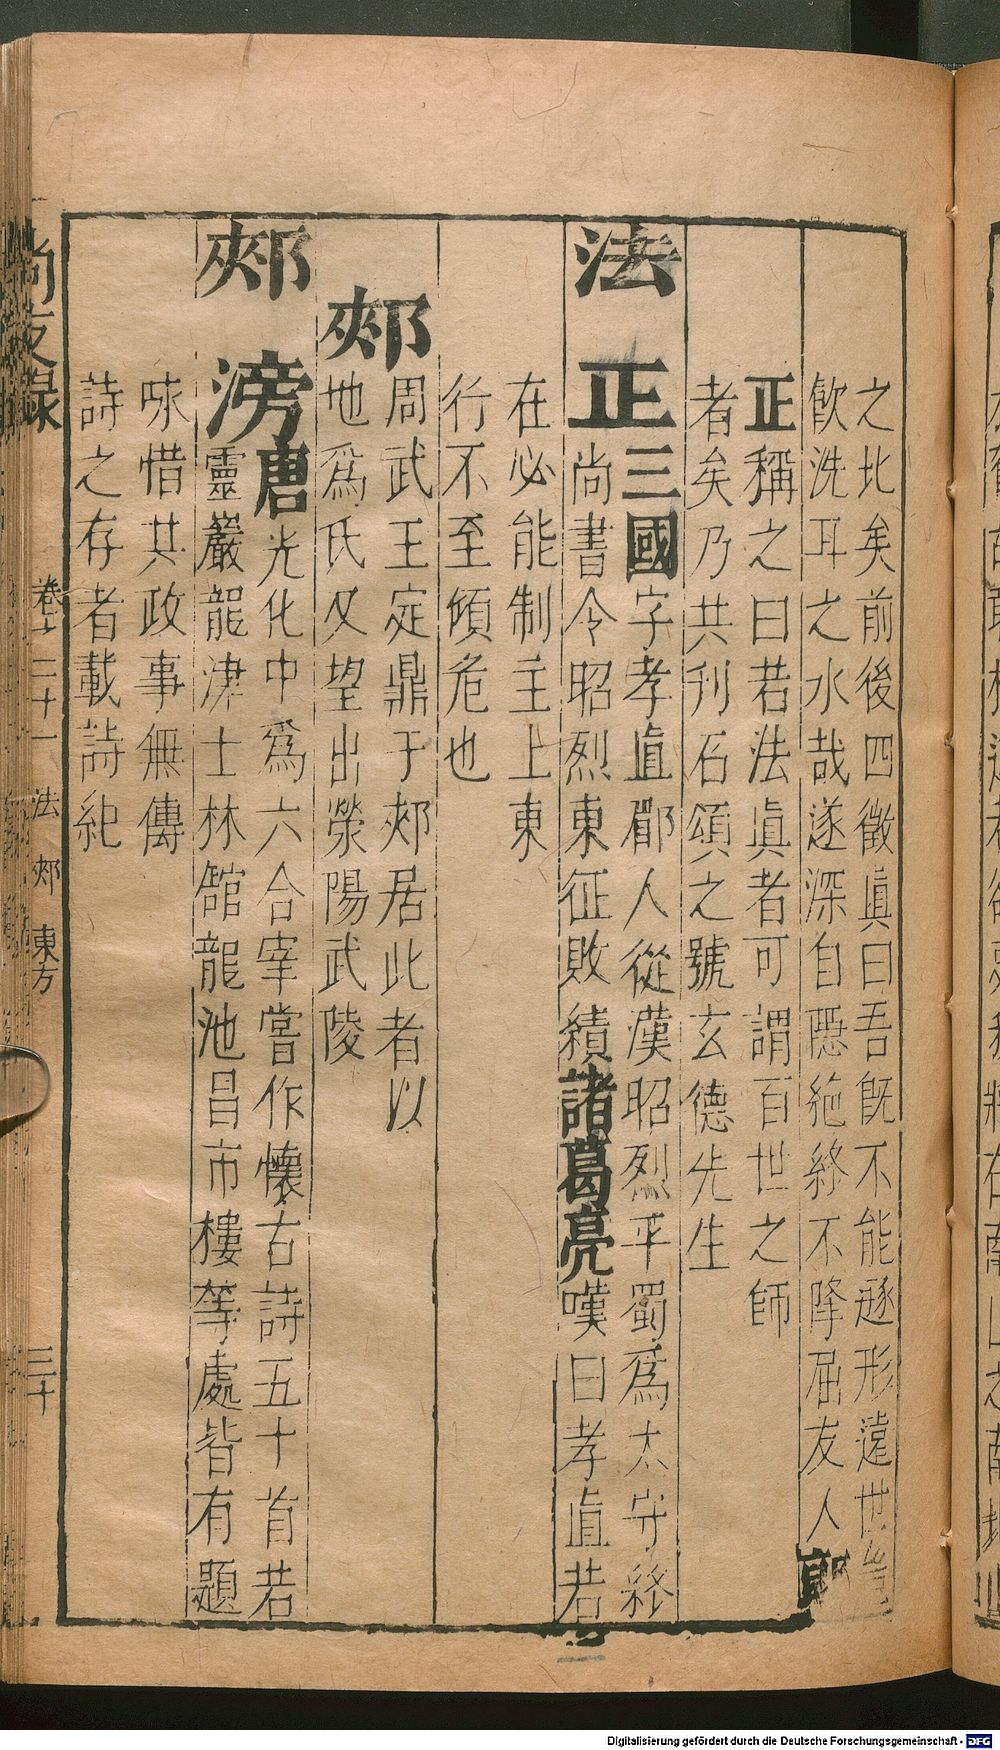 之比矣前後四徵眞曰吾旣不能遯形遠世
飮洗耳之水哉遂深自隱絶終不降屈友人郭
正稱之曰若法眞者可謂百世之師
者矣乃共刋石頌之號玄德先生
法
正三國字孝直郿人從漢昭烈平蜀爲太守終
尚書令昭烈東征敗績諸葛亮嘆曰孝直若
在必能制主上東
行不至傾危也
郟
周武王定鼎于郟居此者以
地爲氏又望出滎陽武陵
郟
滂唐光化中爲六合宰嘗作懷古詩五十首若
靈巖龍津士林館龍池昌市樓等處皆有題
咏惜其政事無傳
詩之存者載詩紀
尚友錄
二十一
法
郟
東方
三十
Digitalisierung gefördert durch die Deutsche Forschungsgemeinschaft - DFG